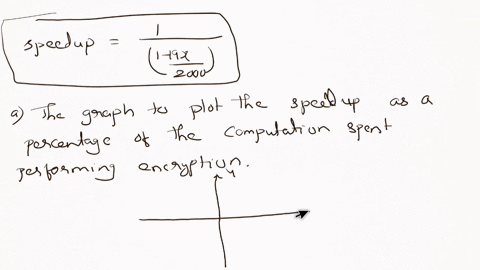 speedup = 1 / (1-19x/2000)
a) The graph to plot the speedup as a
percentage of the computation spent
performing encryption.
y